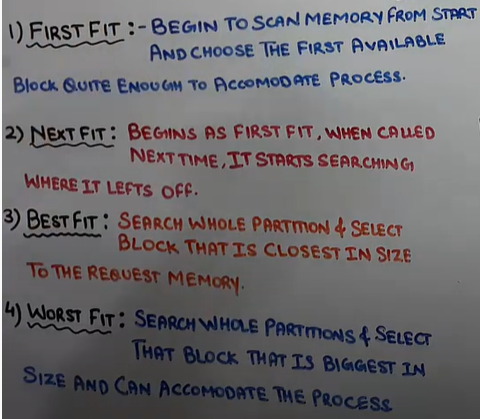 1) FIRST FIT :- BEGIN TO SCAN MEMORY FROM START
AND CHOOSE THE FIRST AVAILABLE
BLOCK QUITE ENOUGH TO ACCOMODATE PROCESS.
2) NEXT FIT : BEGINS AS FIRST FIT, WHEN CALLED
NEXT TIME, IT STARTS SEARCHING
WHERE IT LEFTS OFF.
3) BEST FIT : SEARCH WHOLE PARTITION & SELECT
BLOCK THAT IS CLOSEST IN SIZE
TO THE REQUEST MEMORY.
4) WORST FIT : SEARCH WHOLE PARTITIONS & SELECT
THAT BLOCK THAT IS BIGGEST IN
SIZE AND CAN ACCOMODATE THE PROCESS